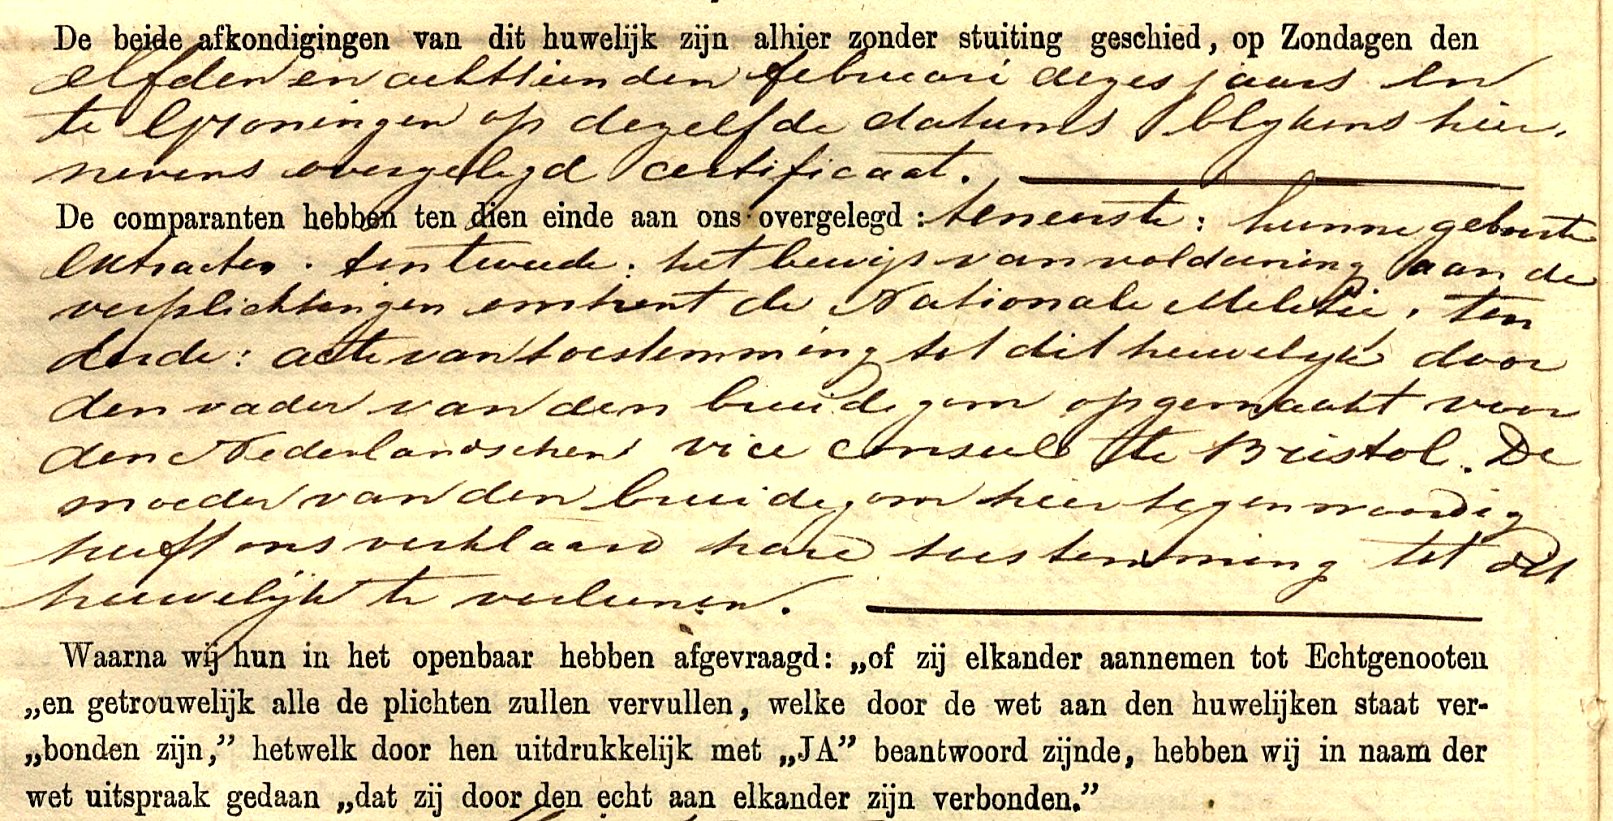 De beide afkondigingen van dit huwelijk zijn alhier zonder stuiting geschied, op Zondagen den
elfden en achttienden februari dezes jaars en
te Groningen op dezelfde datums blykens hier
nevens overgelegd certificaat.
De comparanten hebben ten dien einde aan ons overgelegd : ten eerste : hunne geboorte
extracten . ten tweede : het bewijs van voldoening aan de
verplichtingen omtrent de Nationale Militie , ten
derde : acte van toestemming tot dit huwelyk door
den vader van den bruidegom opgemaakt voor
den Nederlandschen vice consul te Bristol . De
moeder van den bruidegom hier tegenwoordig
heeft ons verklaard hare toestemming tot dit
huwelijk te verleenen .
Waarna wij hun in het openbaar hebben afgevraagd: „of zij elkander aannemen tot Echtgenooten
„en getrouwelijk alle de plichten zullen vervullen, welke door de wet aan den huwelijken staat ver-
„bonden zijn,” hetwelk door hen uitdrukkelijk met „JA” beantwoord zijnde, hebben wij in naam der
wet uitspraak gedaan „dat zij door den echt aan elkander zijn verbonden.”